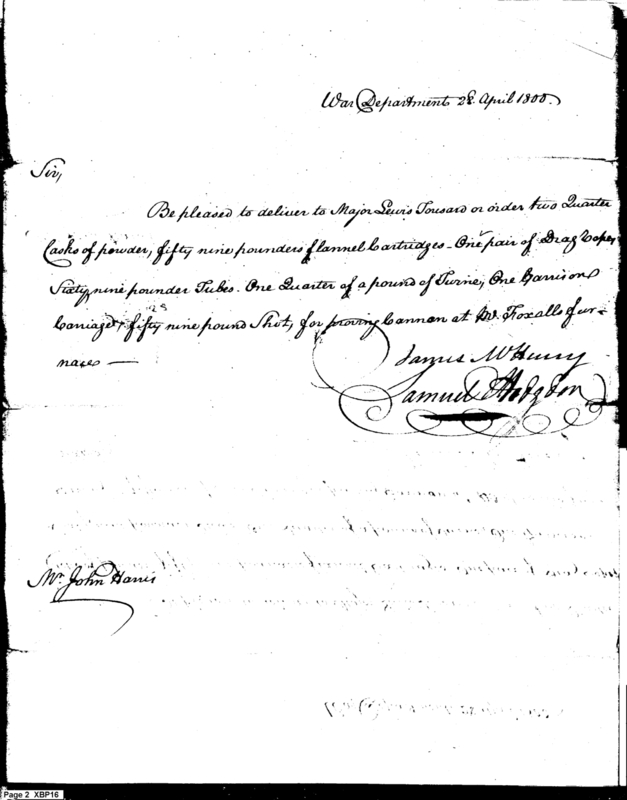 War Department 28 April 1800.
Sir,
Be pleased to deliver to Major Lewis Tousard or order two Quarter
Casks of powder, fifty nine pounders flannel Cartridges - One pair of Drag Ropes
Sixty nine pounder Tubes. One Quarter of a pound of Turne, One Garrison
Carriage, fifty nine pound Shot, for proving Cannon at Mr. Foxalls fur-
nace —
James McHenry
Samuel Hodgdon
Mr. John Harris
Page 2 XBP16